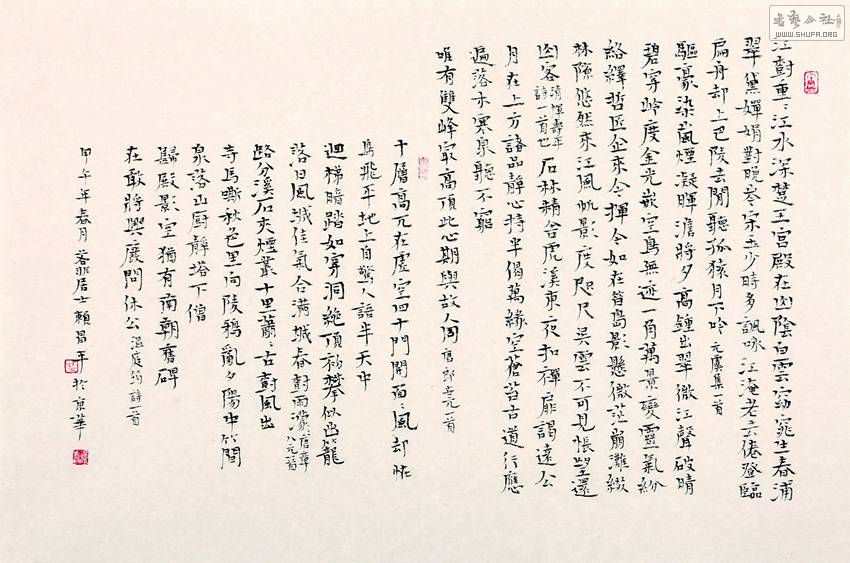 江樹重〻江水深楚王宮殿在西陰白雲窈窕生春浦
翠黛嬋娟對晚岑宋玉少時多諷咏江淹老去倦登臨
扁舟却上巴陵去閒聽孤猿月下吟元虞集一首
驅豪染風煙凝暉澹將夕高鍾出翠微江聲破晴
碧穿岭度金光嵌空鳥無迹一角萬景變靈氣紛
絡繹哲匠企來今揮令如在島影懸微茫崩灘綴
林隙悠然來江風帆影度咫尺吳雲不可見悵望還
西客清惲壽平詩一首也石林精舍虎溪東夜扣禪扉謁遠公
月在上方諸品靜心持半偈萬緣空蒼苔古道行應
遍落木寒泉聽不窮
唯有雙峰最高頂此心期與故人同唐郎士元一首
十層高兀在虛空四十門開面〻風却怪
鳥飛平地上自驚人語半天中
迴梯暗踏如穿洞絕頂初攀似出籠
落日鳳城佳氣合滿城春樹雨濛〻唐章八元一首
路分溪石夾煙叢十里蕭〻古樹風出
寺馬嘶秋色里向陵鴉亂夕陽中竹間
泉落山厨靜塔下僧
歸殿影空猶有南朝舊碑
在敢將興廢問休公溫庭筠詩一首
甲午年春月容非居士賴昌平於京華
書藝公社
WWW.SHUFA.ORG